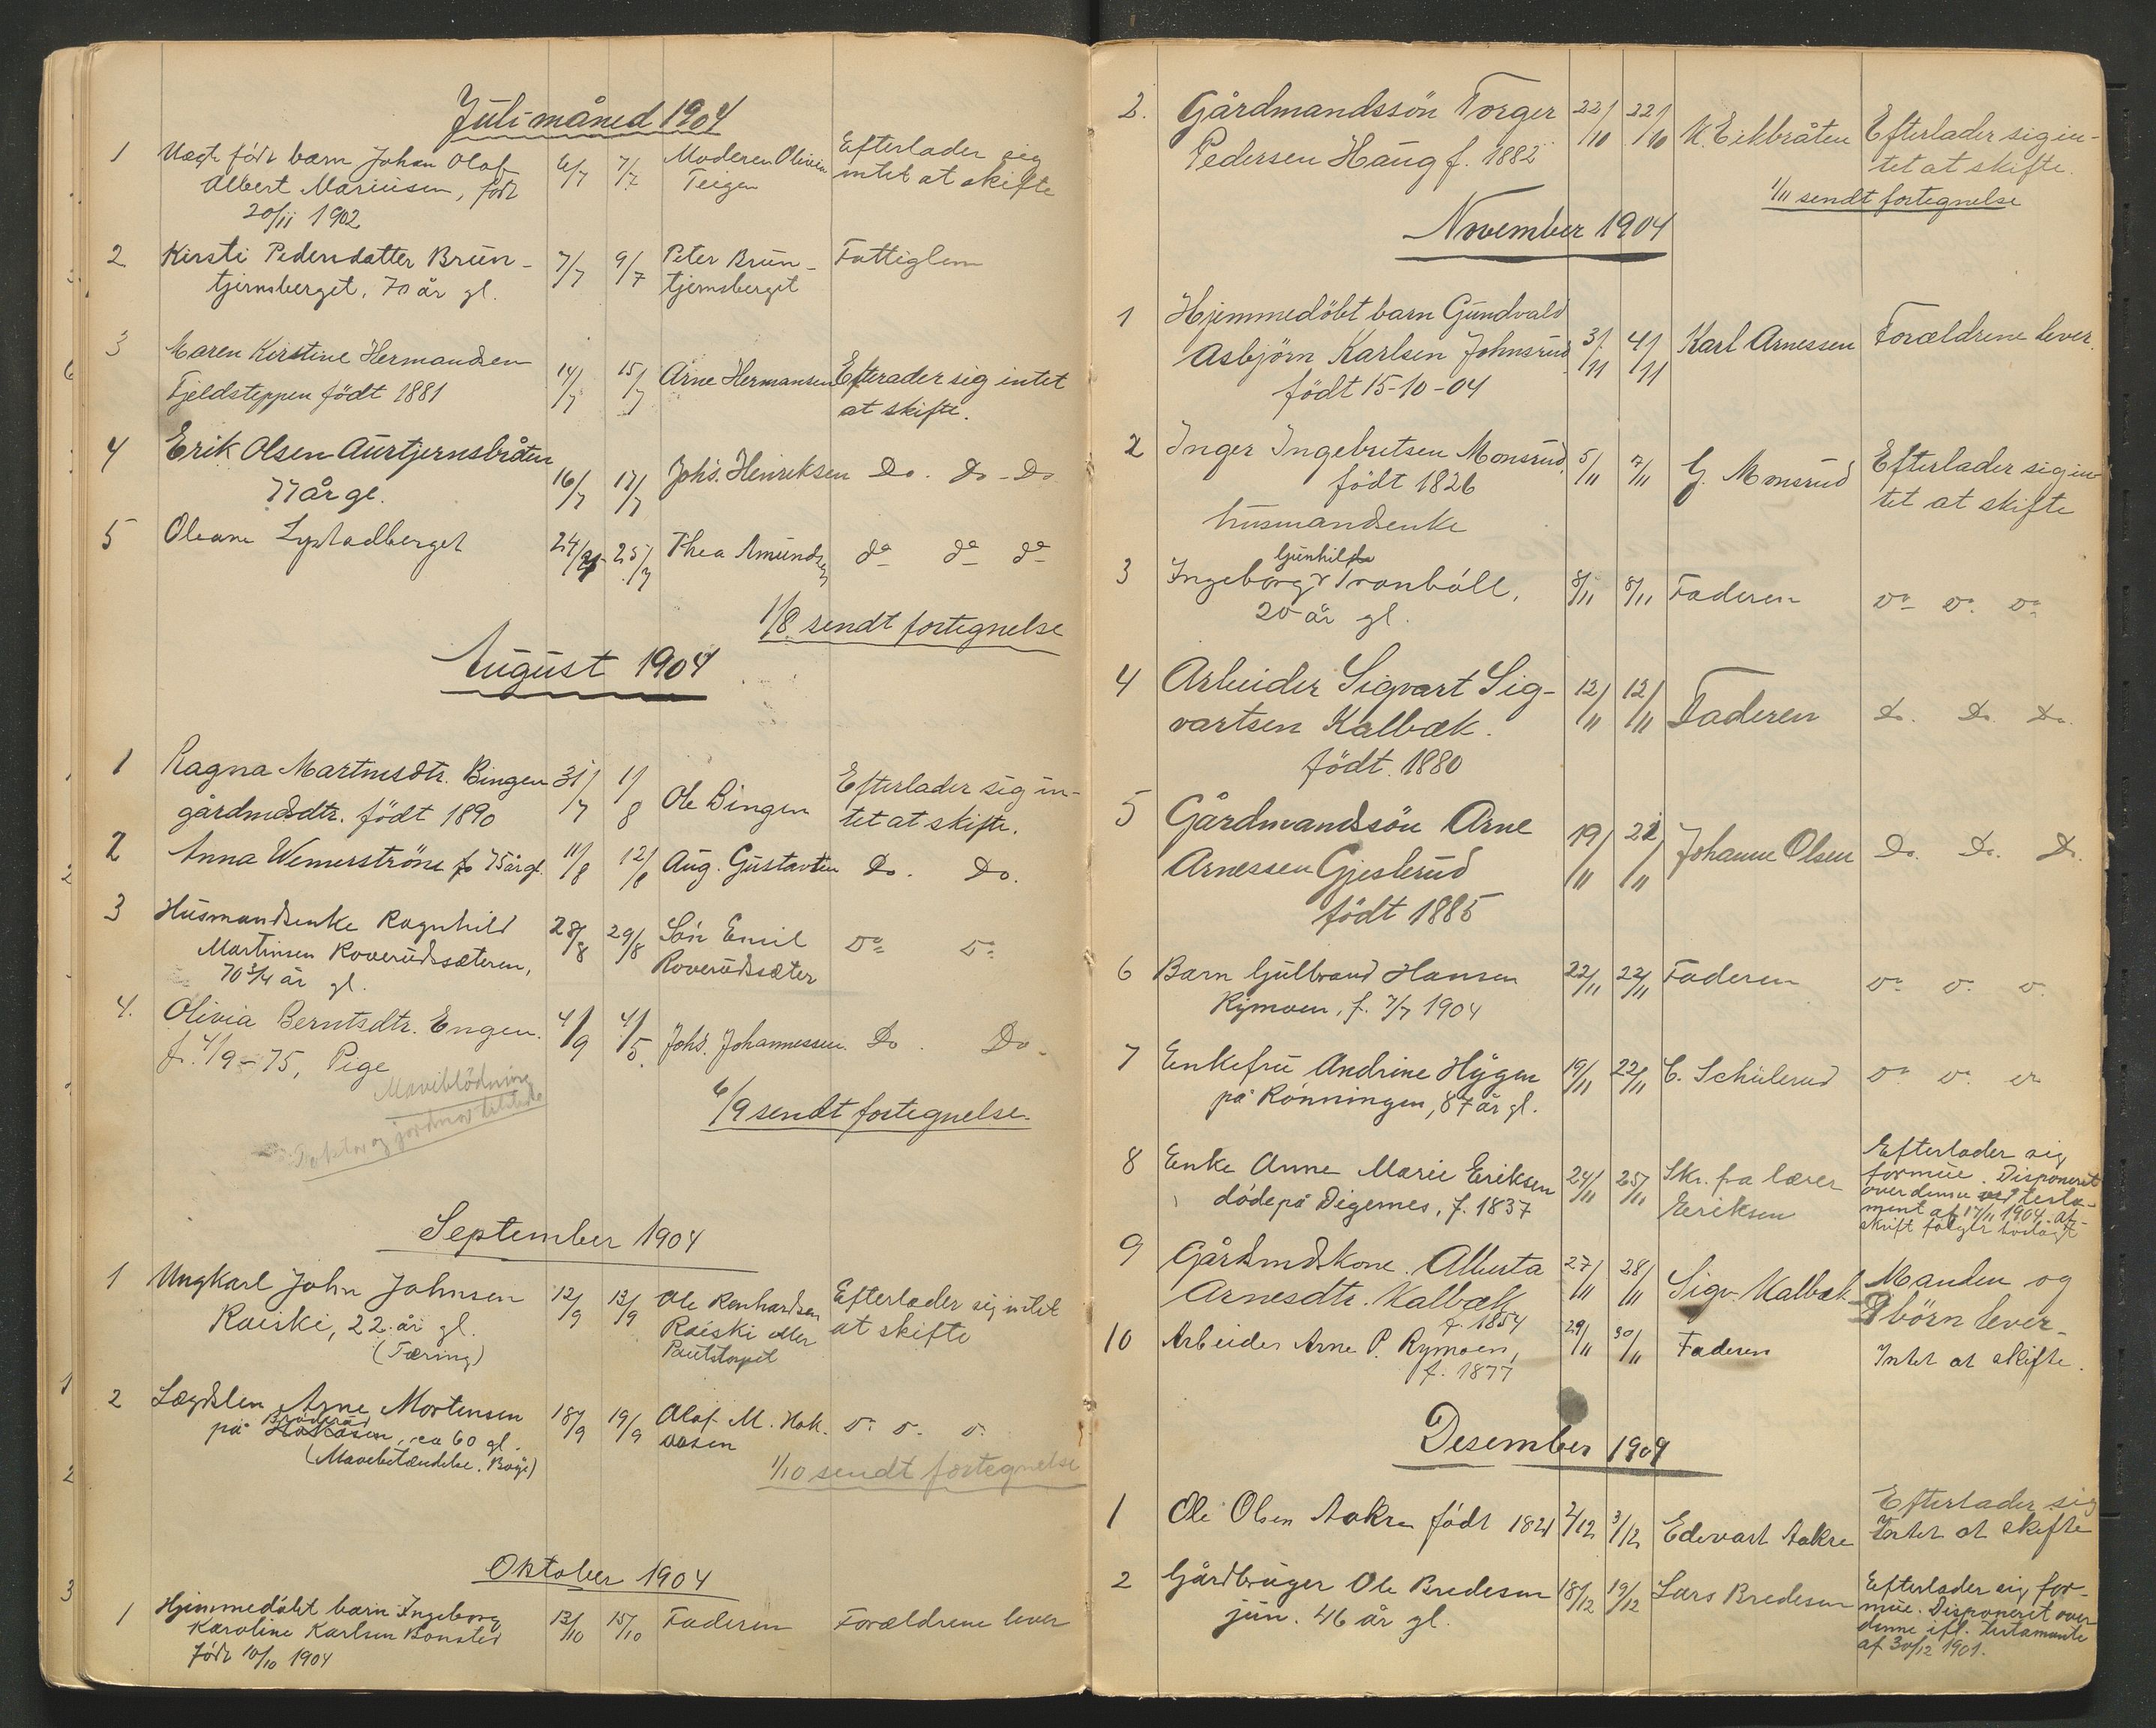 Juli måned 1904
1 Uægte født barn Johan Olaf 6/7 7/7 Moderen Olivia Efterlader sig
Albert Mariusen, født Teigen intet at skifte
20/11 1902
2 Kirsti Pedersdatter Brun- 7/7 9/7 Peter Brun- Fattiglem
tjernsberget, 70 år gl. tjernsberget
3 Maren Kirstine Hermandsen 14/7 15/7 Arne Hermansen Efterader sig intet
Fjeldsteppen født 1881 at skifte.
4 Erik Olsen Aurtjernsbråten 16/7 17/7 Johs. Henriksen Do. Do - Do
77 år gl.
5 Oleane Lystadberget 24/7 25/7 Thea Amundsen do do do
1/8 sendt fortegnelse
August 1904
1 Ragna Martinsdtr. Bingen 31/7 1/8 Ole Bingen Efterlader sig in-
gårdmdsdtr. født 1890 tet at skifte.
2 Anna Wennerströne 75 år gl. 11/8 12/8 Aug. Gustavsen Do. Do.
3 Husmandsenke Ragnhild 28/8 29/8 Søn Emil Do Do
Martinsen Roverudsæteren, Roverudsæter
70 3/4 år gl.
4. Olivia Berntsdtr. Engen. 4/9 4/5 Johs. Johannessen. Do. Do.
f. 4/9-75, Pige
Maveblödning
Doktor og jordmor
6/9 sendt fortegnelse.
September 1904
1 Ungkarl John Johnsen 12/9 13/9 Ole Renhardsen Efterlader sig intet
Raiski, 22 år gl. Raiski eller at skifte
(Tæring)
2 Lægdslem Arne Mortensen 18/9 19/9 Olaf M. Hok- Do. Do. Do.
på Hokåsen, ca 60 gl. aasen
(Mavebetændelse. Boye)
1/10 sendt fortegnelse
Oktober 1904
1 Hjemmedøbt barn Ingeborg 13/10 15/10 Faderen Forældrene lever
Karoline Karlsen Bonsted
født 10/10 1904
2. Gårdmandssön Torger 22/10 22/10 K. Eikbråten Efterlader sig in-
Pedersen Haug f. 1882 tet at skifte.
1/11 sendt fortegnelse
November 1904
1 Hjemmedöbt barn Gundvald
Asbjörn Karlsen Johnsrud 3/11 4/11 Karl Arnessen Forældrene lever.
födt 15-10-04
2 Inger Ingebretsen Monsrud, 5/11 7/11 G. Monsrud Efterlader sig in-
födt 1826 tet at skifte
husmandsenke
Gunhild
3 Ingeborg Tranböll, 8/11 8/11 Faderen Do Do. Do
20 år gl.
4 Arbeider Sigvart Sig- 12/11 12/11 Faderen Do. Do. Do.
vartsen Kalbæk.
födt. 1880
5 Gårdmandssön Arne 19/11 22/11 Johanne Olsen Do. Do. Do.
Arnessen Gjeslerud
födt 1885
6 Barn Gulbrand Hansen 22/11 22/11 Faderen Do. Do. Do.
Rymoen, f. 7/7 1904
7 Enkefru Andrine Hygen 19/11 22/11 C. Schulerud Do Do.
på Rönningen, 87 år gl.
8 Enke Anne Marie Eriksen 24/11 25/11 Skr. fra lærer Efterlader sig
dödepå Digernes, f. 1837 Eriksen formue. Disponeret
over denne ved testa-
ment af 17/11 1904. Af-
skrift følger
9 Gårdmdskone. Alberta 27/11 28/11 Sigv. Kalbæk Manden og
Arnesdtr. Kalbæk 9 börn lever.
f. 1854
10 Arbeider Arne P. Rymoen, 29/11 30/11 Faderen Intet at skifte.
f. 1877
Desember 1904
1 Ole Olsen Aakre født 1821 2/12 3/12 Edevart Aakre Efterlader sig
Intet at skifte
2 Gårdbruger Ole Bredesen 18/12 19/12 Lars Bredesen Efterlader sig for-
jun. 46 år gl. mue. Disponeret over
denne ifl. testamente
af 30/12 1901.